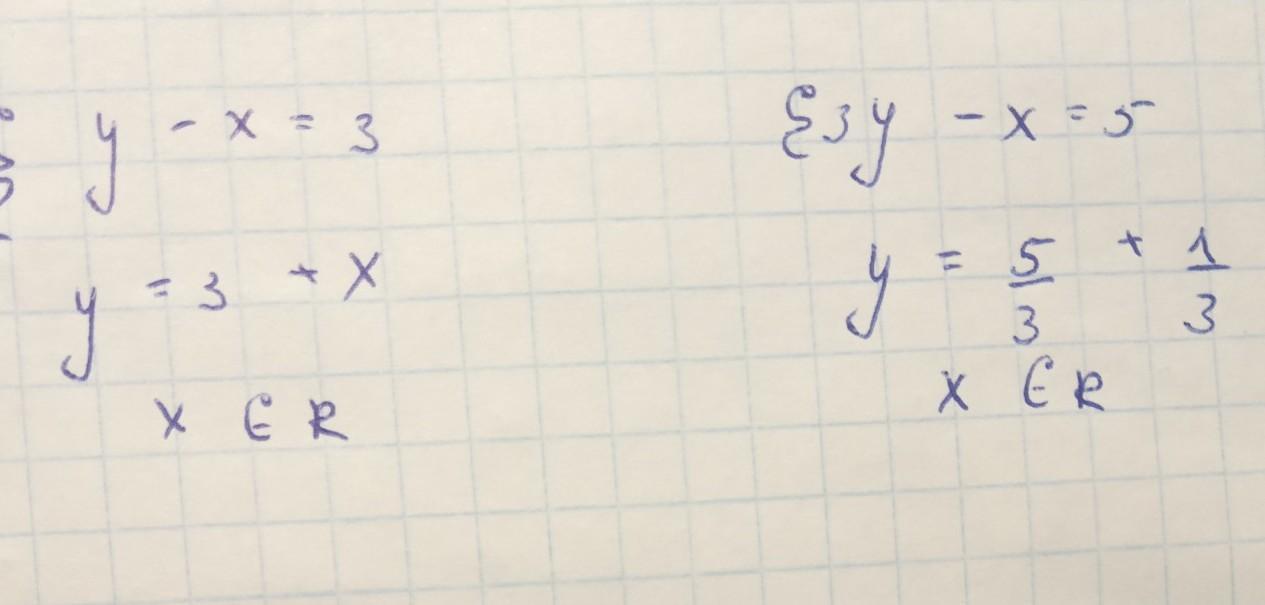 { y - x = 3
y = 3 + x
x ∈ R
{ 3y - x = 5
y = 5/3 + 1/3
x ∈ R